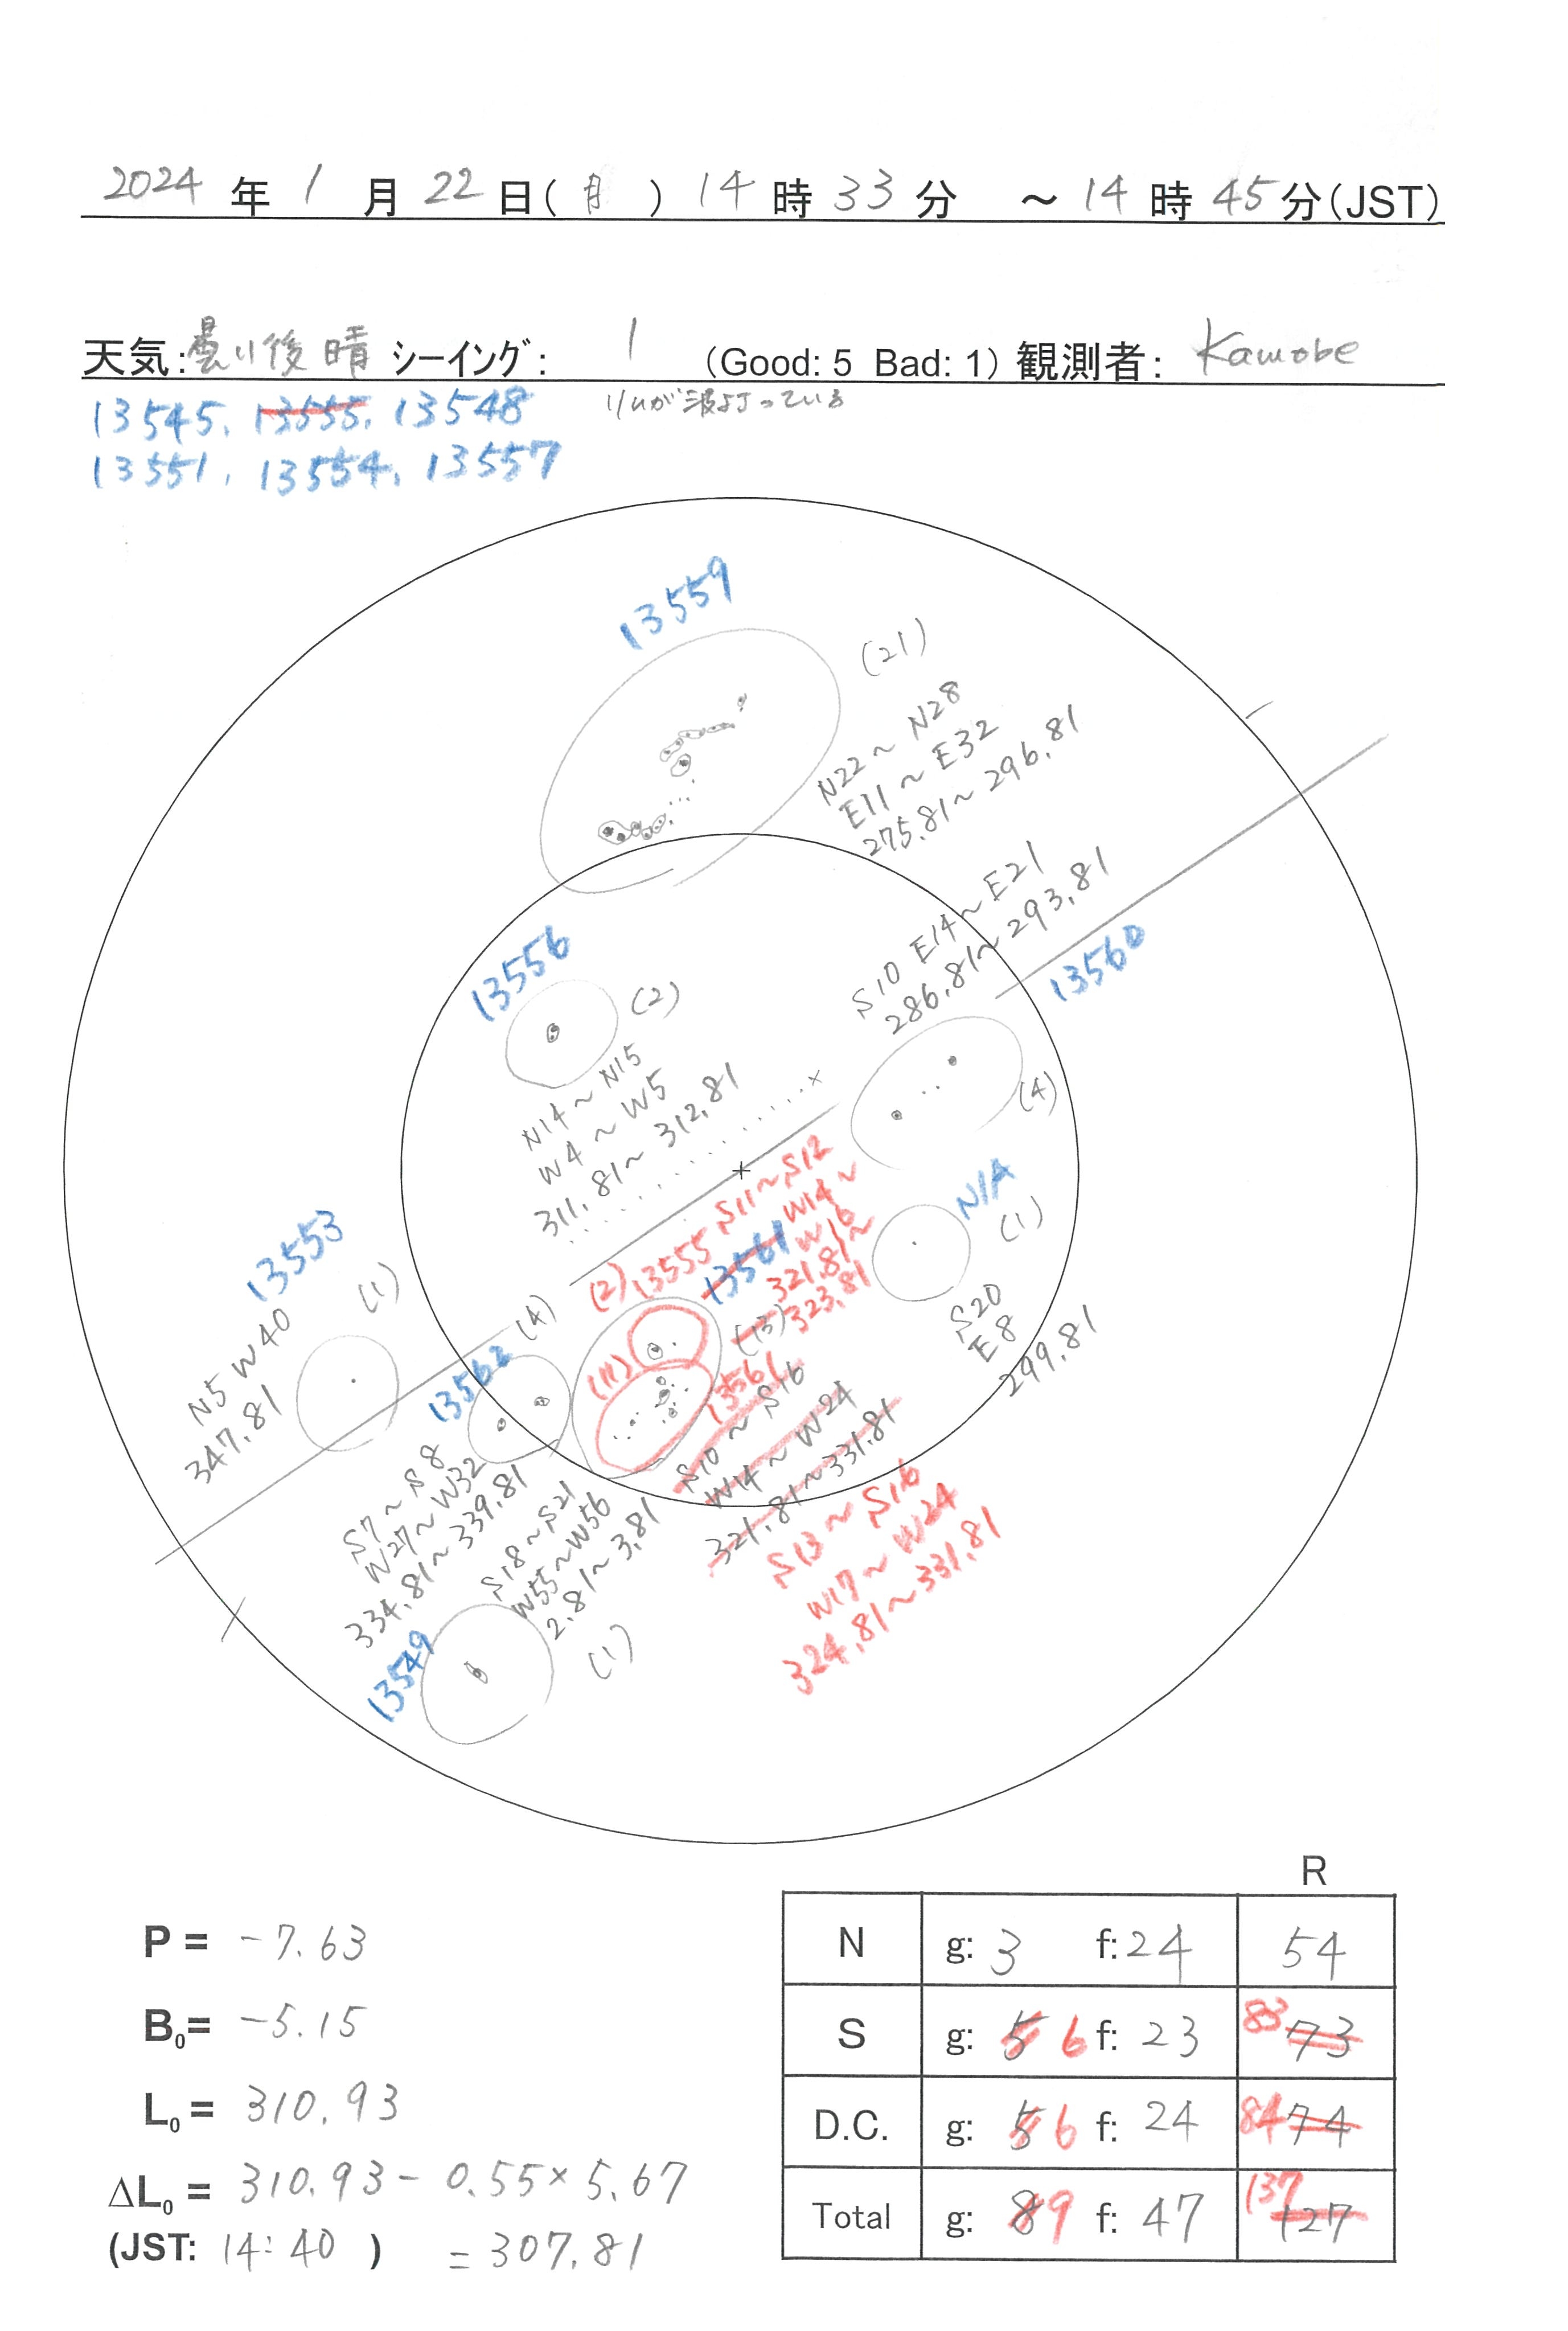 2024 年 1 月 22 日(月) 14 時 33 分 ～ 14 時 45 分(JST)
天気: 曇り後晴 シーイング: 1 (Good: 5 Bad: 1) 観測者: Kamobe
13545, 13555, 13548
リムが波打っている
13551, 13554, 13557
13559
(21)
N22~N28
E11~E32
275.81~296.81
S10 E14~E21
286.81~293.81
13560
(4)
13556
(2)
N14~N15
W4~W5
311.81~312.81
N/A
(1)
S20
E8
299.81
13553
(1)
N5 W40
347.81
(2) 13555 S11~S12
13561 W14~
W16
321.81~
323.81
(13)
(11) 13561
S10~S16
W14~W24
321.81~331.81
S13~S16
W17~W24
324.81~331.81
13562
(4)
S7~S8
W27~W32
334.81~339.81
S18~S21
W55~W56
2.81~3.81
(1)
13549
R
N g: 3 f: 24 54
S g: 5 6 f: 23 83 73
D.C. g: 5 6 f: 24 84 74
Total g: 8 9 f: 47 137 127
P = -7.63
B₀= -5.15
L₀ = 310.93
ΔL₀ = 310.93 - 0.55 × 5.67
(JST: 14:40 ) = 307.81